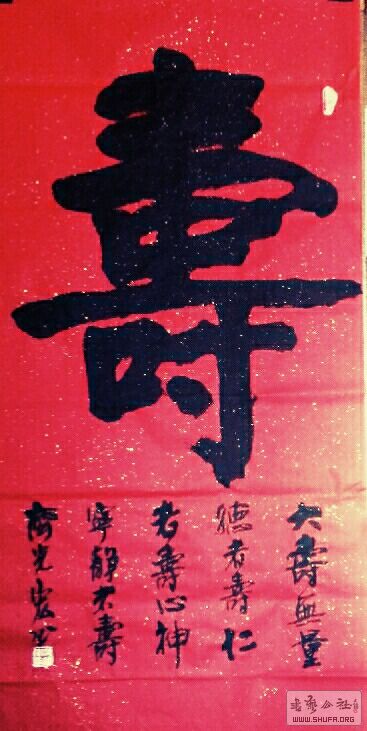 壽
大壽無量
德者壽仁
者壽心神
寧靜大壽
齊光宏書
书艺公社
WWW.SHUFA.ORG